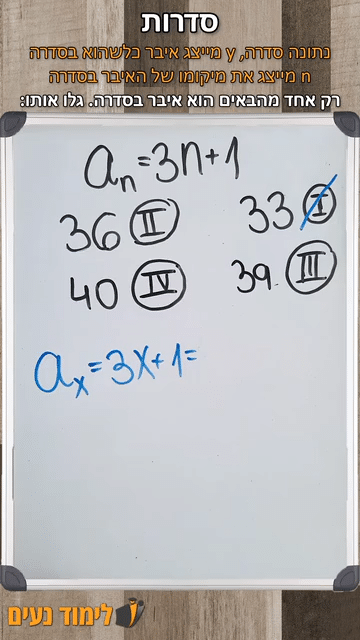 סדרות
נתונה סדרה, y מייצג איבר כלשהוא בסדרה
n מייצג את מיקומו של האיבר בסדרה
רק אחד מהבאים הוא איבר בסדרה. גלו אותו:
aₙ=3n+1
33 I
36 II
39 III
40 IV
aₓ=3x+1=
לימוד נעים